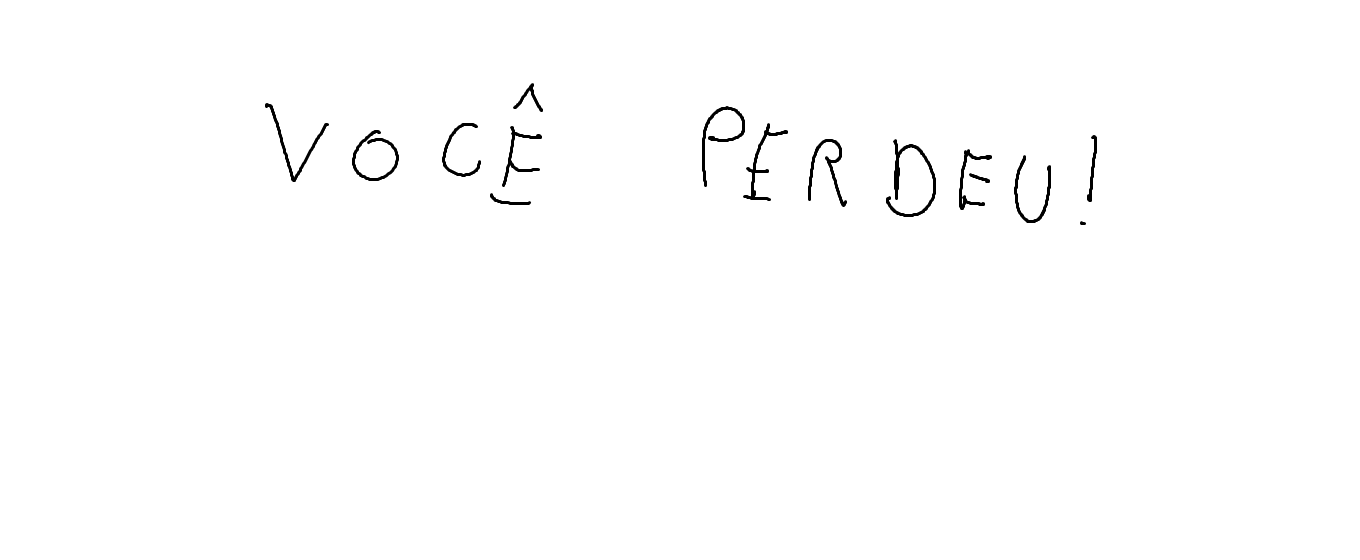 VOCÊ PERDEU!